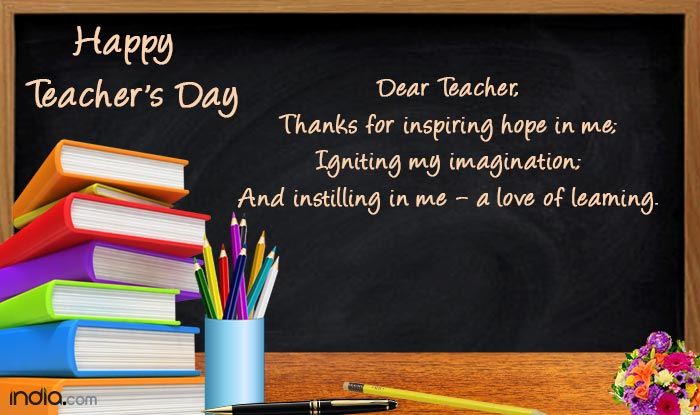 Happy
Teacher's Day
Dear Teacher,
Thanks for inspiring hope in me;
Igniting my imagination;
And instilling in me – a love of learning.
india.com